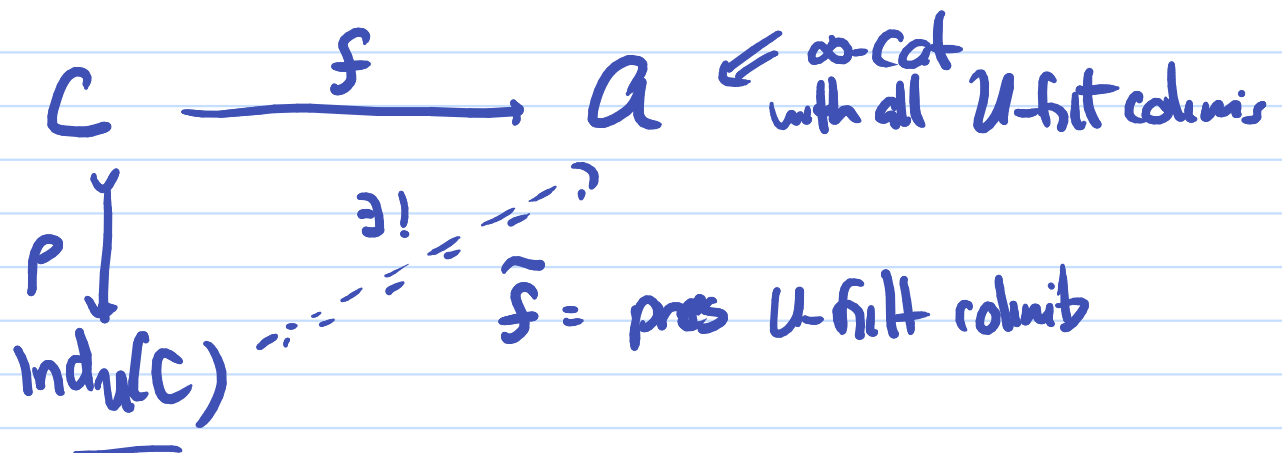 f
C → A ⇐ ∞-cat
with all U-filt colimis
ρ ∃!
f̃ = pres U-filt colimits
Ind_U(C)